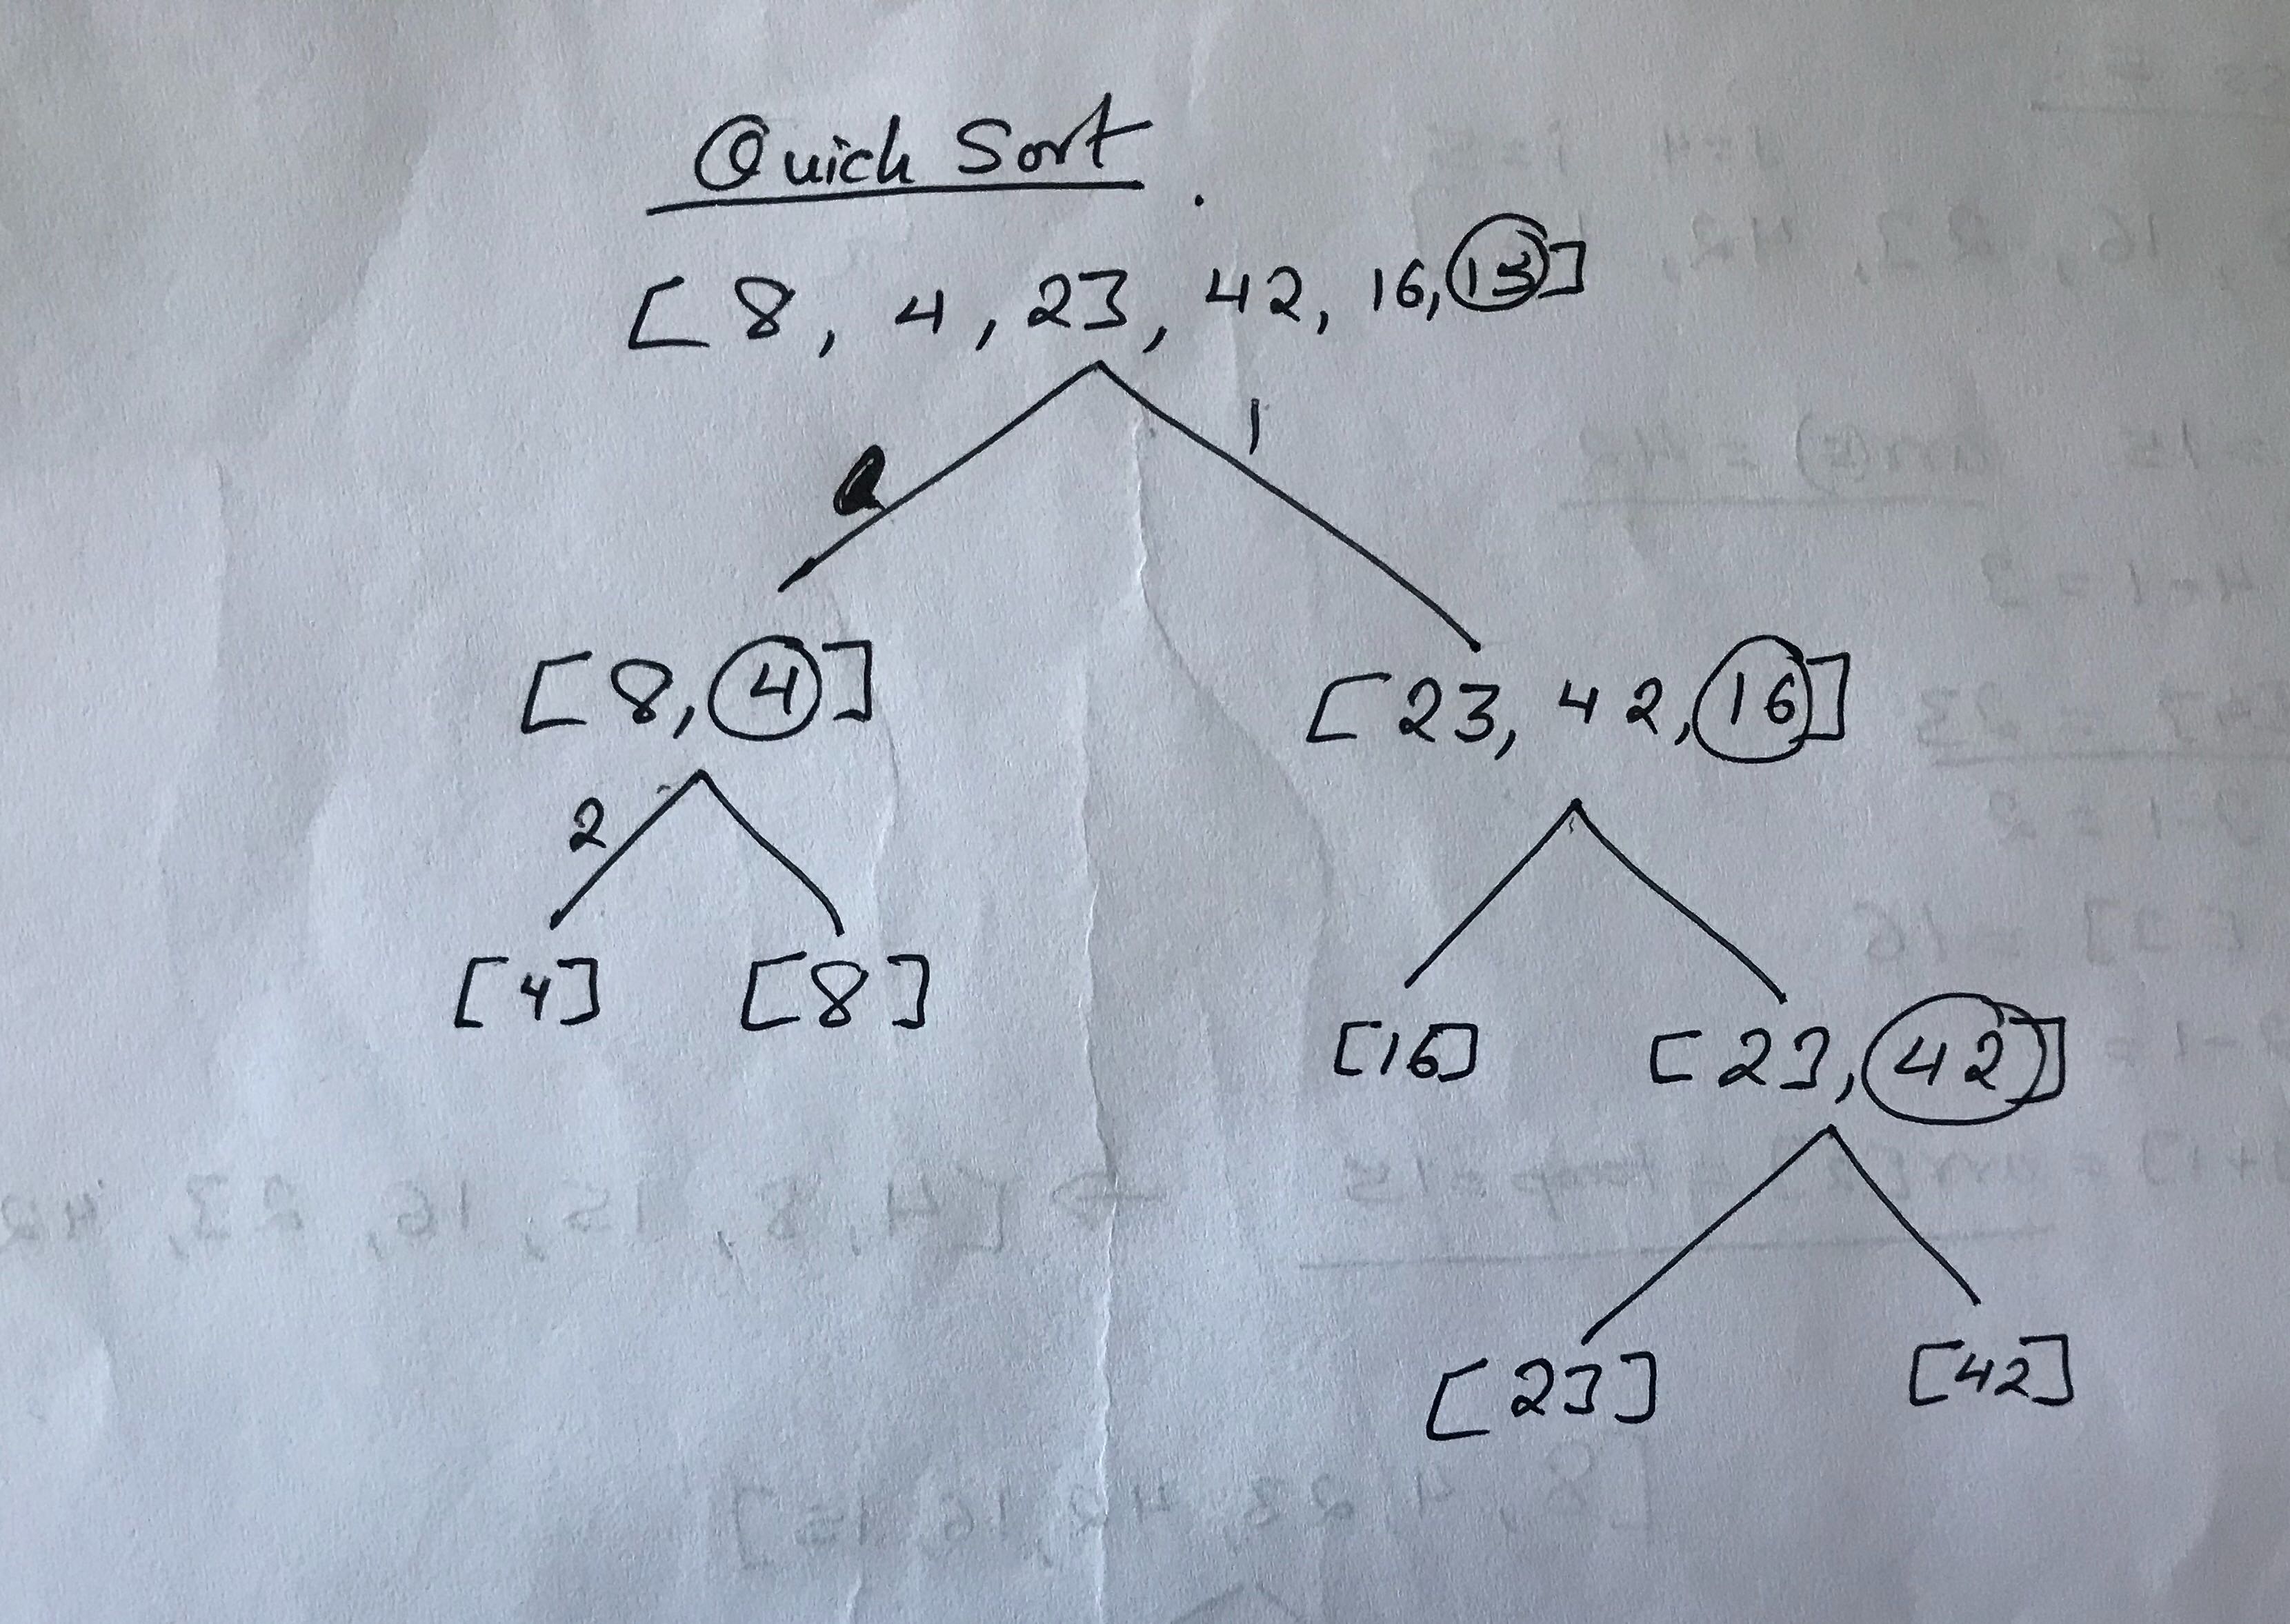 Quick Sort.
[8, 4, 23, 42, 16, 15]
1
[8, 4] [23, 42, 16]
2
[4] [8] [16] [23, 42]
[23] [42]